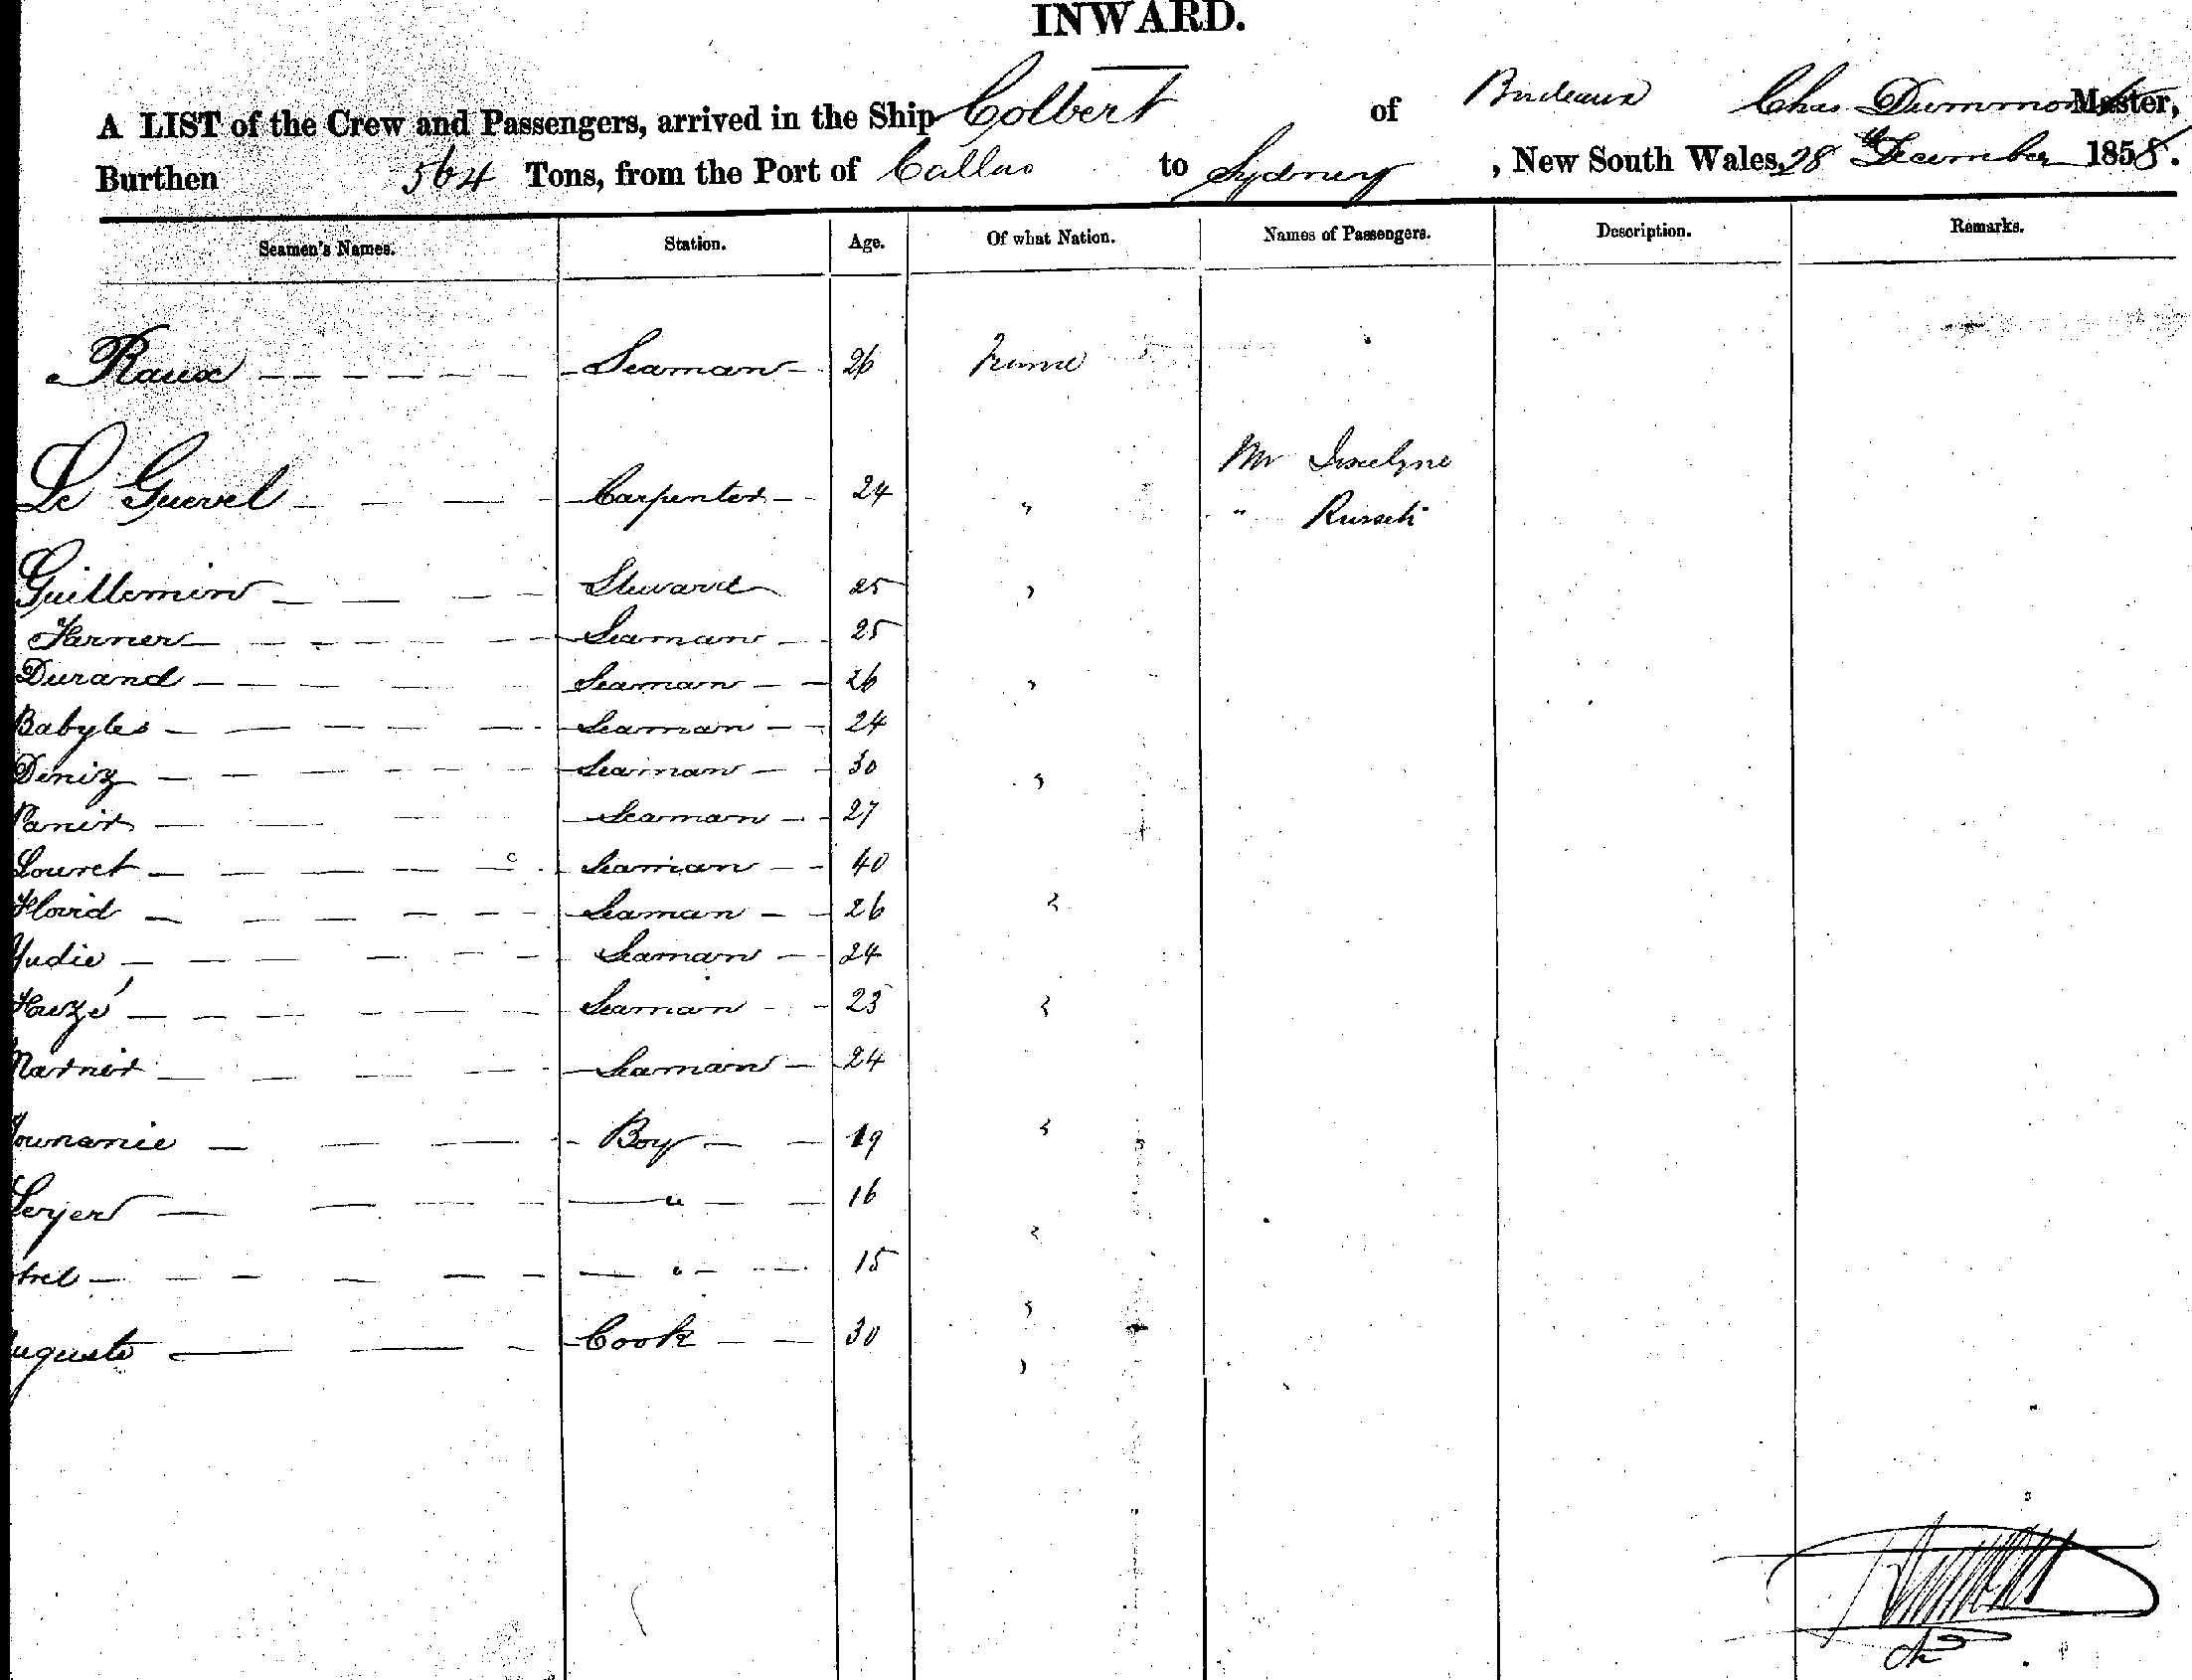 INWARD.
A LIST of the Crew and Passengers, arrived in the Ship Colbert of Bordeaux Chas. Dummont Master,
Burthen 564 Tons, from the Port of Callao to Sydney, New South Wales, 28th December 1858.
Seamen's Names. Station. Age. Of what Nation. Names of Passengers. Description. Remarks.
Raux — Seaman — 26 France
Mr Joscelyne
Le Guevel — Carpenter — 24 "
" Russell
Guillemin — Steward 25 "
Farner — Seaman — 25
Durand — Seaman — 26 "
Babyles — Seaman — 24
Deniz — Seaman — 30 "
Panier — Seaman — 27
Louret — Seaman — 40
Hovid — Seaman — 26 "
Yudie — Seaman — 24
Seaman — 23 "
Marnier — Seaman — 24
Boy — 19 "
" — 16
" — 15
Auguste — Cook — 30